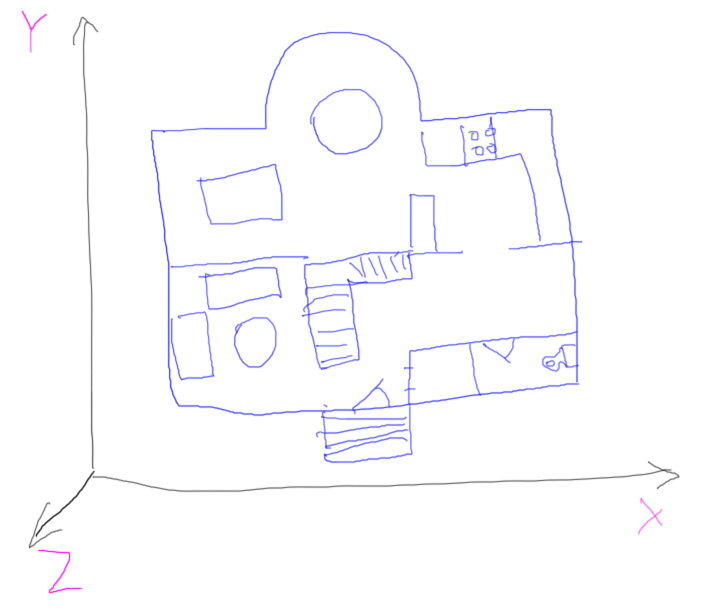 Y
X
Z